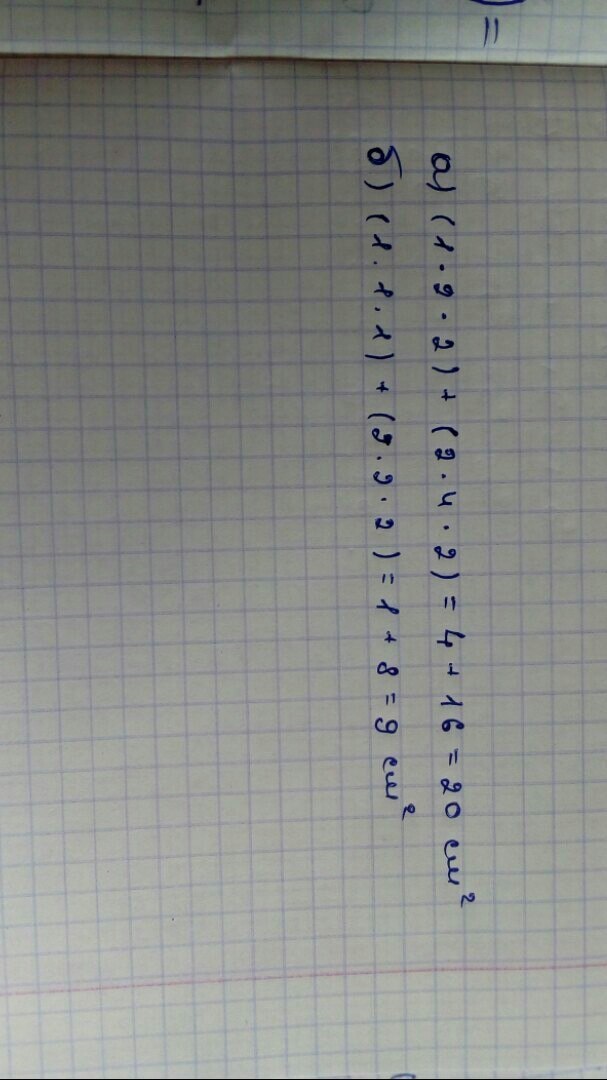 =
а) (1 · 2 · 2) + (2 · 4 · 2) = 4 + 16 = 20 см²
б) (1 · 1 · 1) + (2 · 2 · 2) = 1 + 8 = 9 см²